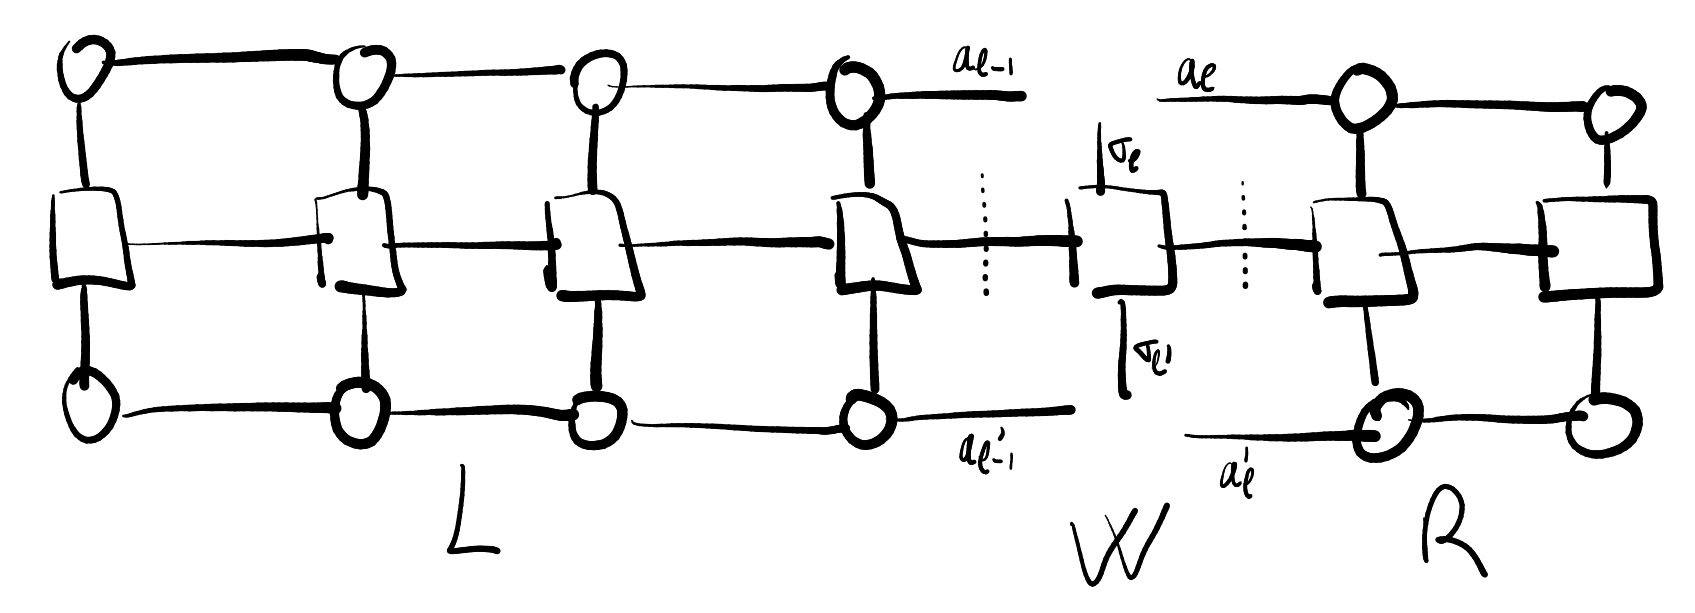 aℓ-1 aℓ
σℓ
σℓ'
a'ℓ-1 a'ℓ
L W R